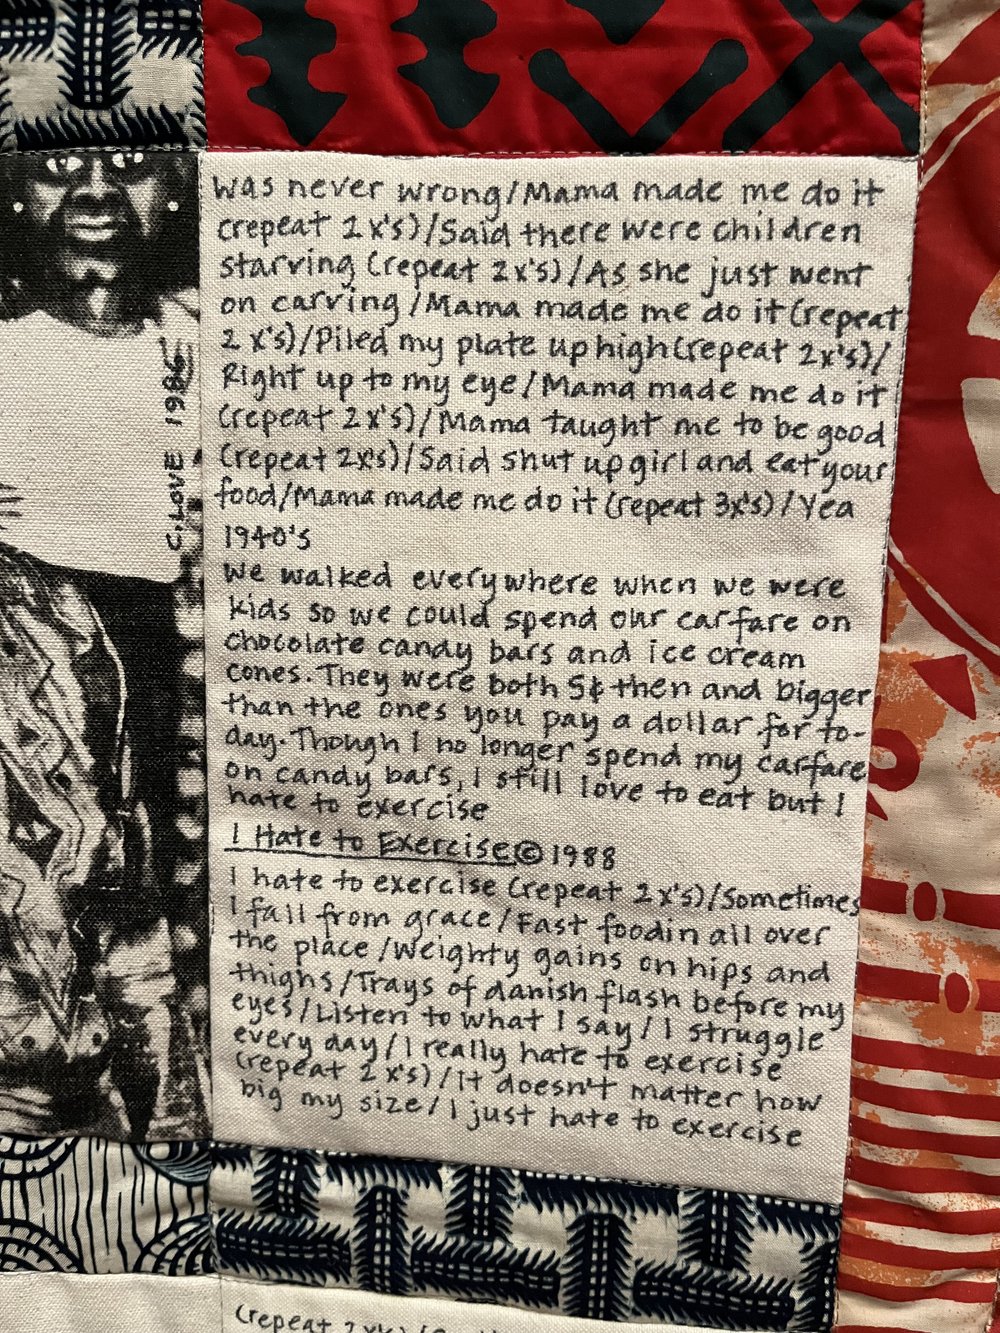 was never wrong/Mama made me do it
(repeat 2x's)/Said there were children
starving (repeat 2x's)/As she just went
on carving/Mama made me do it (repeat
2x's)/Piled my plate up high (repeat 2x's)/
Right up to my eye/Mama made me do it
(repeat 2x's)/Mama taught me to be good
(repeat 2x's)/Said shut up girl and eat your
food/Mama made me do it (repeat 3x's)/Yea
1940's
We walked everywhere when we were
kids so we could spend our carfare on
chocolate candy bars and ice cream
cones. They were both 5¢ then and bigger
than the ones you pay a dollar for to-
day. Though I no longer spend my carfare
on candy bars, I still love to eat but I
hate to exercise
I Hate to Exercise © 1988
I hate to exercise (repeat 2x's)/Sometimes
I fall from grace/Fast foodin all over
the place/Weighty gains on hips and
thighs/Trays of danish flash before my
eyes/Listen to what I say/I struggle
every day/I really hate to exercise
(repeat 2x's)/It doesn't matter how
big my size/I just hate to exercise
C. LOVE 1986
(repeat 2x's)/